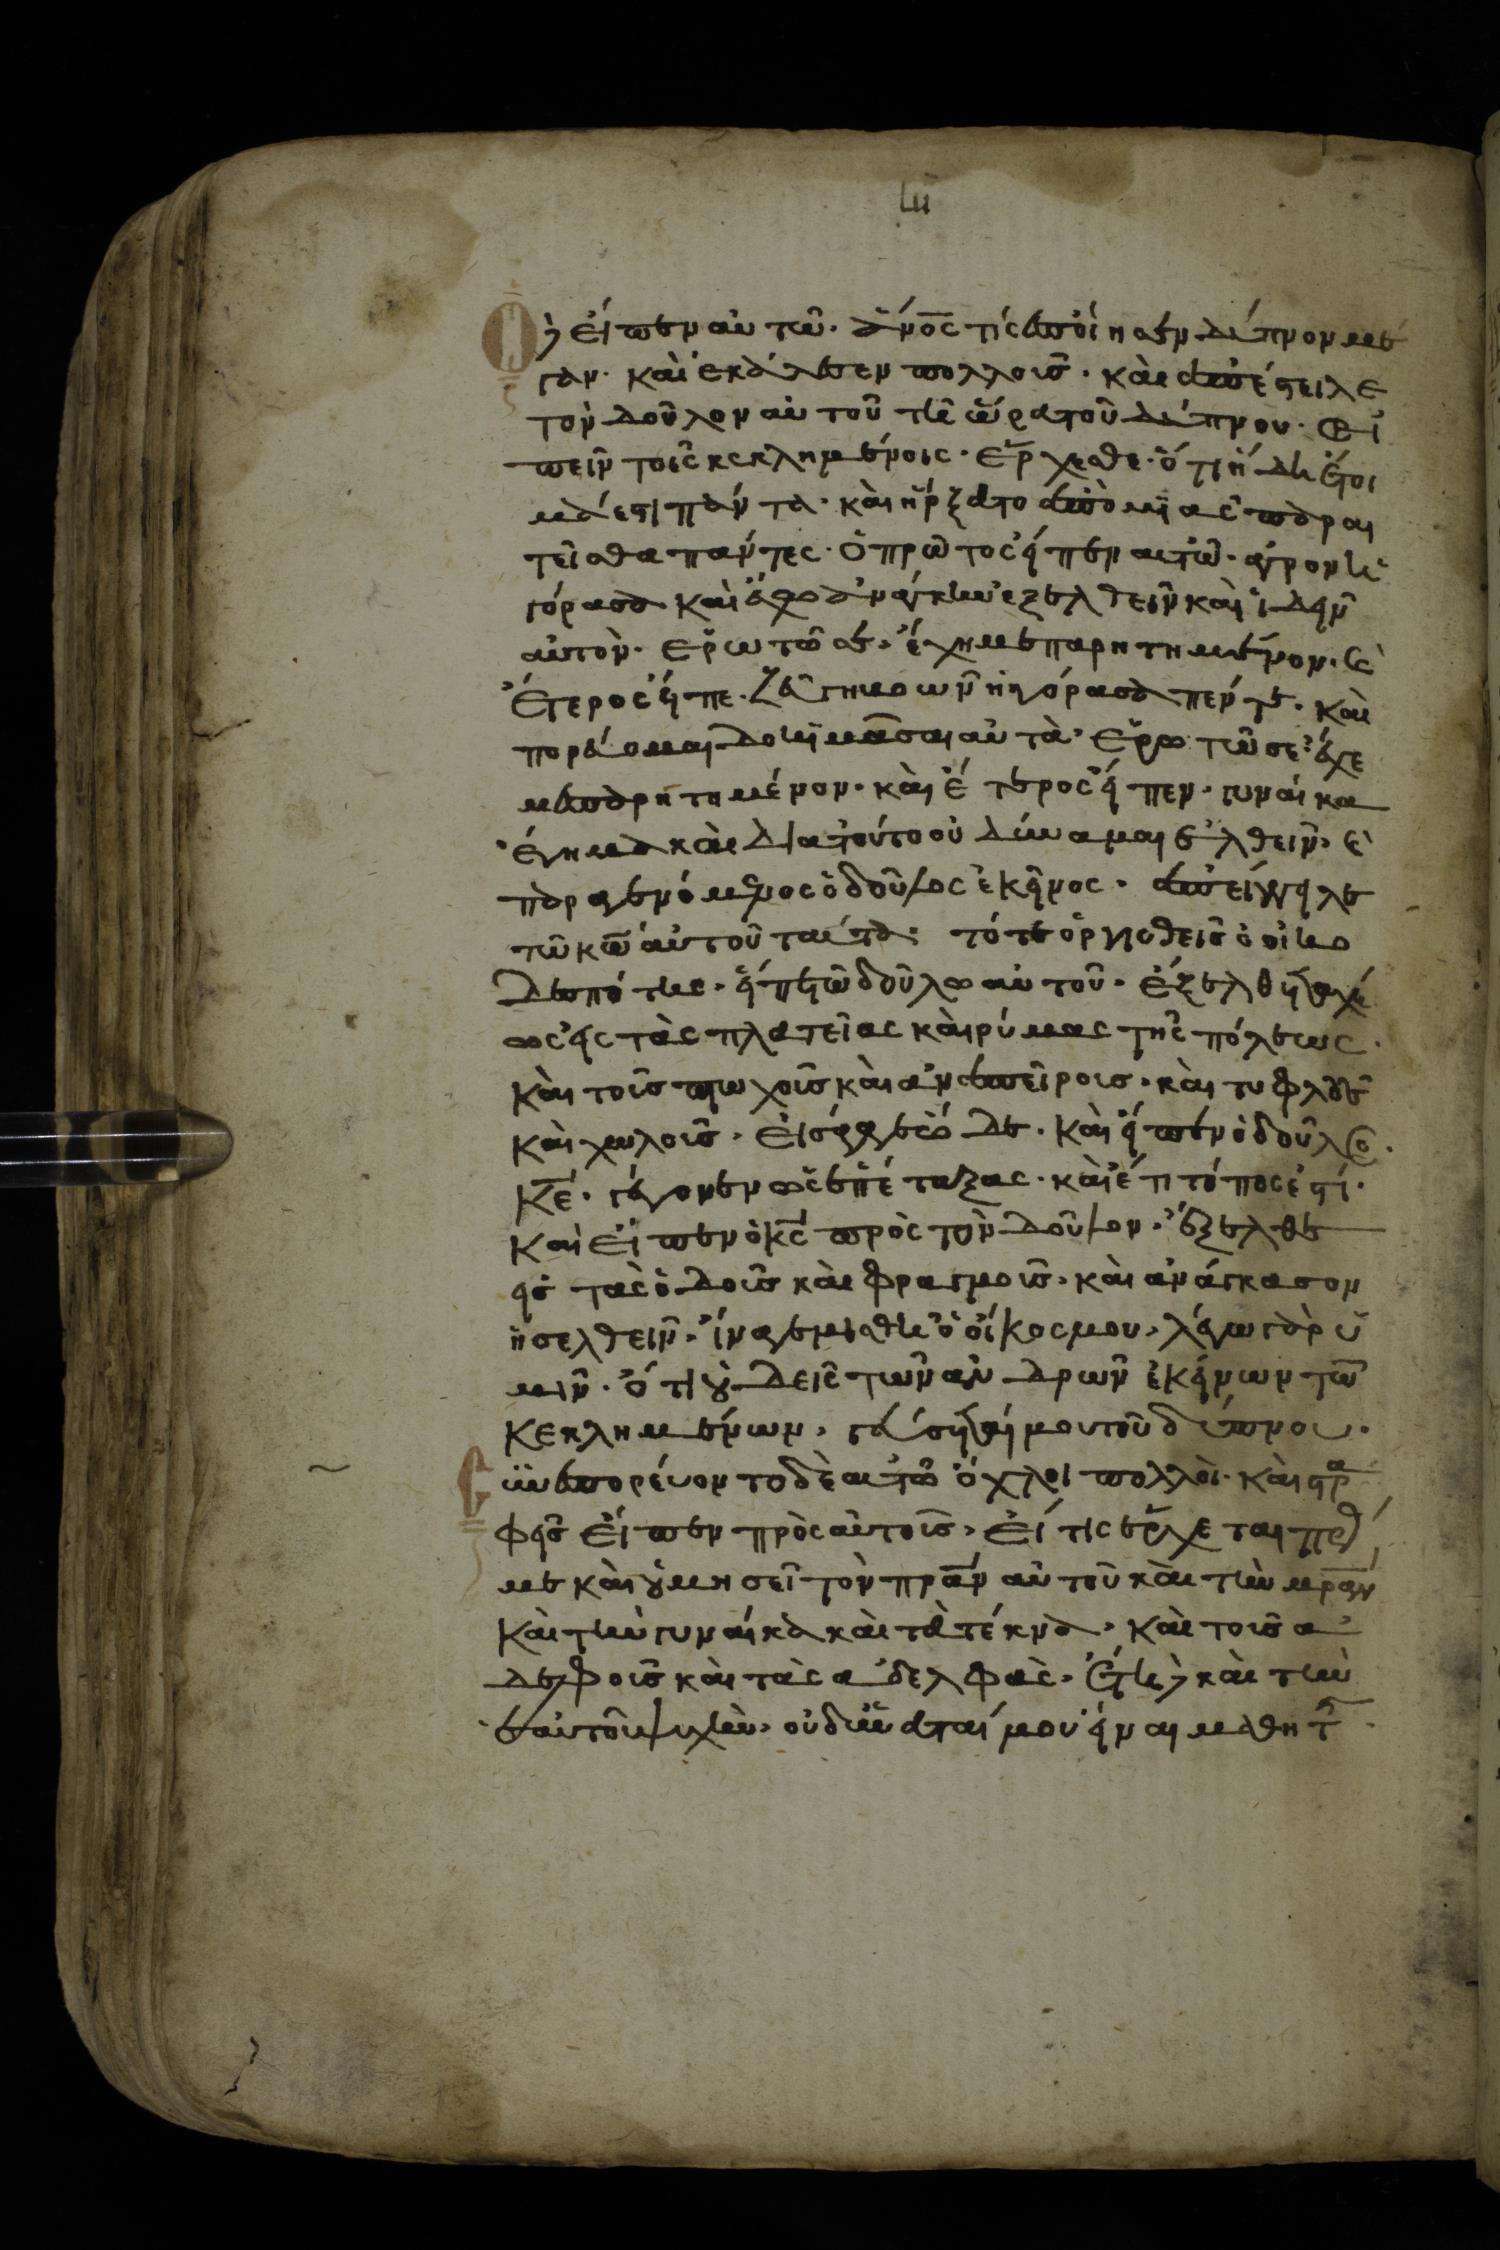 Ὁ δὲ εἶπεν αὐτῶ· ἄνο̅ς τίς ἐποίησεν δεῖπνον μέ
γαν· καὶ ἐκάλεσεν πολλοῖς· καὶ ἀπέστειλε
τὸν δοῦλον αὐτοῦ τῆ ὥρα τοῦ δείπνου· εἰ
πεῖν τοῖς κεκλημένοις· ἔρχεσθε· ὅτι ἤδη ἕτοι
μά ἐστι πάντα· καὶ ἤρξατο ἀπὸ μιᾶς παραι
τεῖσθαι πάντες· ὁ πρῶτος εἶπεν αὐτῶ· ἀγρὸν ἠ
γόρασα καὶ ἔχω ἀνάγκην ἐξελθεῖν καὶ ἰδεῖν
αὐτὸν· ἐρωτῶ σε· ἔχη με παρητημένον· κ̀
ἕτερος εἶπε· ζεύγη βοῶν ἠγόρασα πέντε· καὶ
πορεύομαι δοκιμάσαι αὐτὰ· ἐρωτῶ σε ἔχε
με παρητημένον· καὶ ἕτερος εἶπεν· γυναῖκα
ἔγημα καὶ διατοῦτο οὐ δύναμαι ἐλθεῖν· κ̀
παραγενόμενος ὁ δοῦλος ἐκεῖνος· ἀπήγγειλε
τῶ κω̅ αὐτοῦ ταῦτα· τότε ὀργισθεὶς ὁ οἰκο
δεσπότης· εἶπε τῶ δούλω αὐτοῦ· ἔξελθε ταχέ
ως εἰς τὰς πλατείας καὶ ρύμας τῆς πόλεως·
καὶ τοῖς πτωχοῖς καὶ ἀναπείροις· καὶ τυφλοῖς
καὶ χωλοῖς· εἰσάγαγε ὧδε· καὶ εἶπεν ὁ δοῦλος·
κε̅· γέγονεν ὡς ἐπέταξας· καὶ ἔτι τόπος ἐστί·
καὶ εἶπεν ὁ κς̅ πρὸς τὸν δοῦλον· ἔξελθε
εἰς τὰς ὁδοῖς καὶ φραγμοῖς· καὶ ἀνάγκασον
ἠσελθεῖν· ἵνα γεμισθῆ ὁ οἶκος μου· λέγω γὰρ ὑ
μῖν· ὅτι οὐδεῖς τῶν ἀνδρῶν ἐκείνων τῶν
κεκλημένων· γεύσητέ μου τοῦ δείπνου·
συνεπορεύοντο δὲ αὐτῶ ὄχλοι πολλοὶ· καὶ στρα
φεὶς εἶπεν πρὸς αὐτοῖς· εἴ τις ἔρχεται πρὸς
με καὶ οὐ μησεῖ τὸν πρα̅ν αὐτοῦ καὶ τὴν μρα̅ν
καὶ τὴν γυναῖκα καὶ τὰ τέκνα· καὶ τοῖς ἀ
δελφοῖς καὶ τὰς ἀδελφὰς· ἔτι δὲ καὶ τὴν
ἑαυτοῦ ψυχὴν· οὐ δύναταί μου εἶναι μαθητ